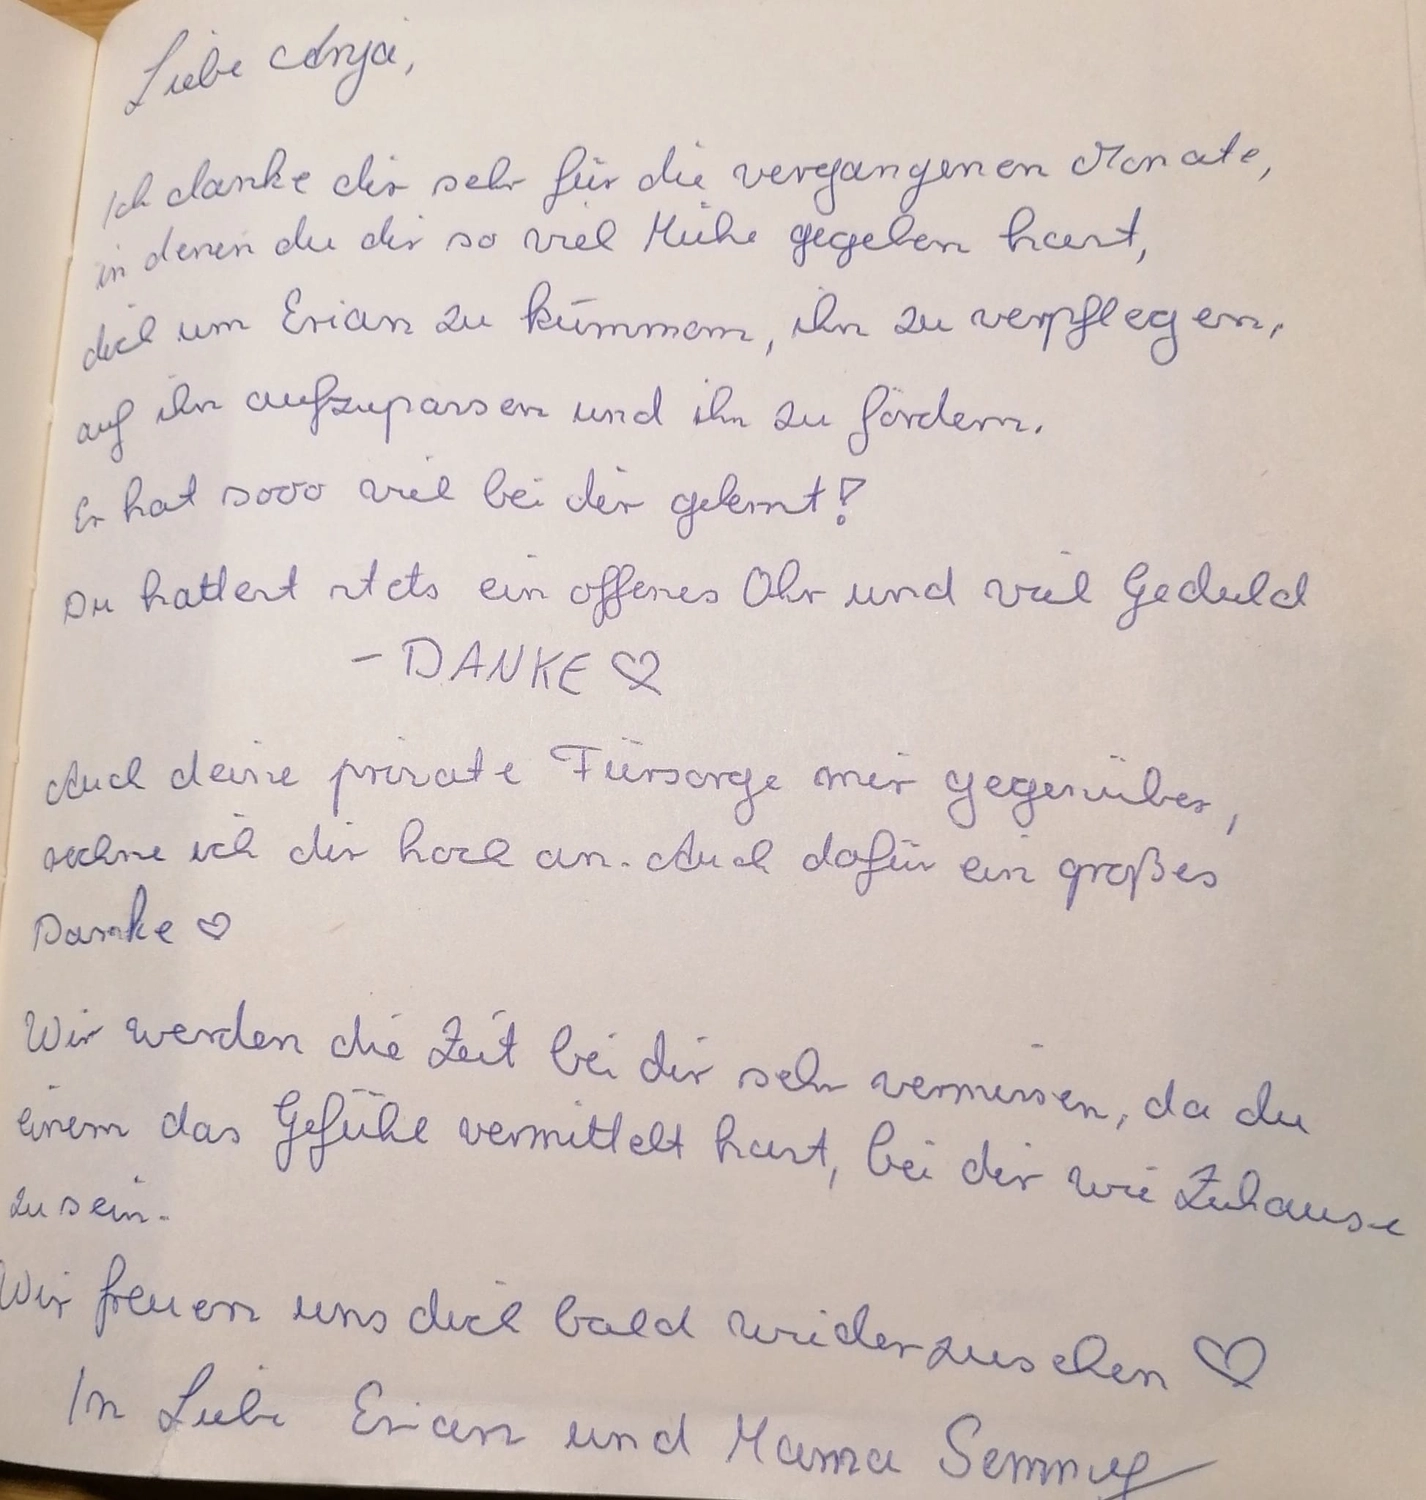 Liebe Anja,
Ich danke dir sehr für die vergangenen Monate,
in denen du dir so viel Mühe gegeben hast,
dich um Erian zu kümmern, ihn zu verpflegen,
auf ihn aufzupassen und ihn zu fördern.
Er hat sooo viel bei dir gelernt!
Du hattest stets ein offenes Ohr und viel Geduld
- DANKE ♡
Auch deine private Fürsorge mir gegenüber,
rechne ich dir hoch an. Auch dafür ein großes
Danke ♡
Wir werden die Zeit bei dir sehr vermissen, da du
einem das Gefühl vermittelt hast, bei dir wie Zuhause
zu sein.
Wir freuen uns dich bald wiederzusehen ♡
In Liebe Erian und Mama